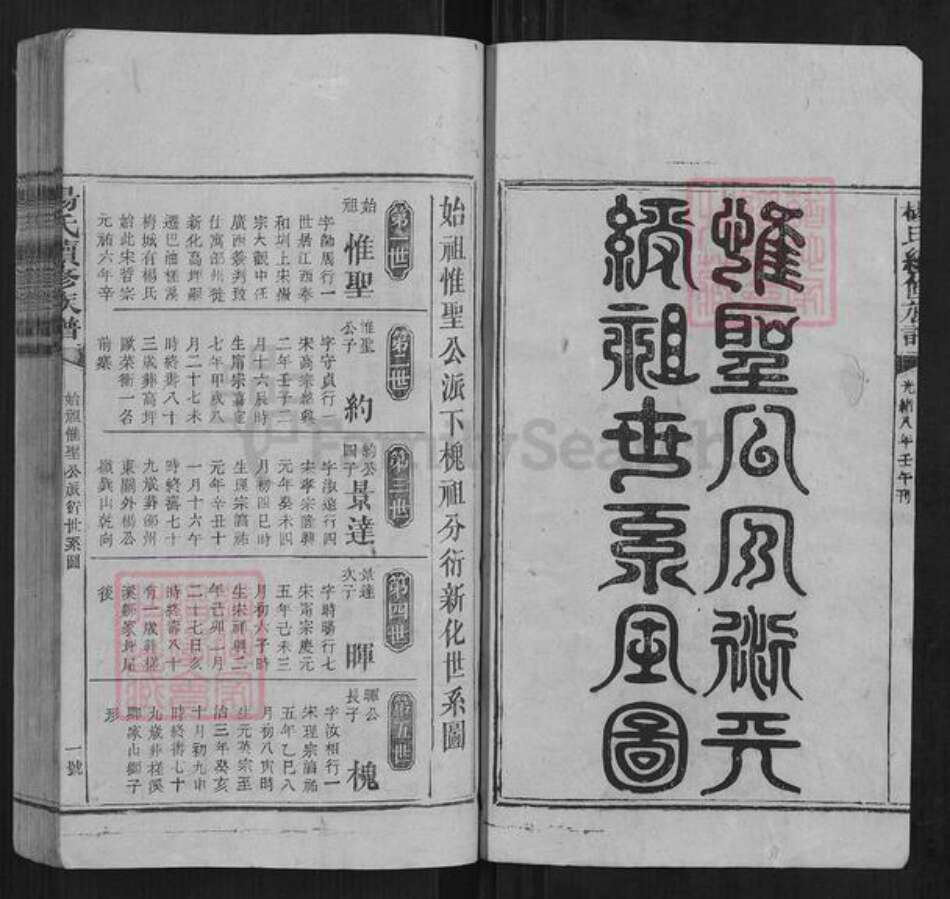 惟聖公乃衍天
綬祖世系圖
光緒八年壬午刊
始祖惟聖公派下槐祖分衍新化世系圖
第一世
始祖
惟聖
字勛周行一
世居江西泰
和圳上宋
宗大觀中
廣西
仕寓邵州徙
新化高坪
遷巴油槎溪
城有楊氏
始此宋哲宗
元祐六年辛
第二世
惟聖公子
約
字守貞行一
宋高宗紹興
二年壬子二
月十六辰時
生甯宗嘉定
七年甲戌八
月二十七未
時終壽八十
三歲葬高坪
歐菜衝一名
前寨
第三世
景達
字淑遠行四
宋孝宗隆興
元年癸未四
月初四巳時
生理宗淳祐
元年辛丑十
一月十六午
時終壽七十
九歲葬邵州
東關外楊公
嶺艮山乾向
第四世
景達次子
暉
字時暘行七
宋甯宗慶元
五年己未三
月初六子時
生宋祥興二
年己卯二月
二十七日亥
時終壽八十
有一歲葬槎
溪鄒家坪尾
後
第五世
暉公長子
槐
字汝相行一
宋理宗淳祐
五年乙巳八
月初八寅時
生元英宗至
治三年癸亥
十月初九申
時終壽七十
九歲葬槎溪
鄒家山獅子
形
楊氏續修族譜
始祖惟聖公派衍世系圖
一號
FamilySearch